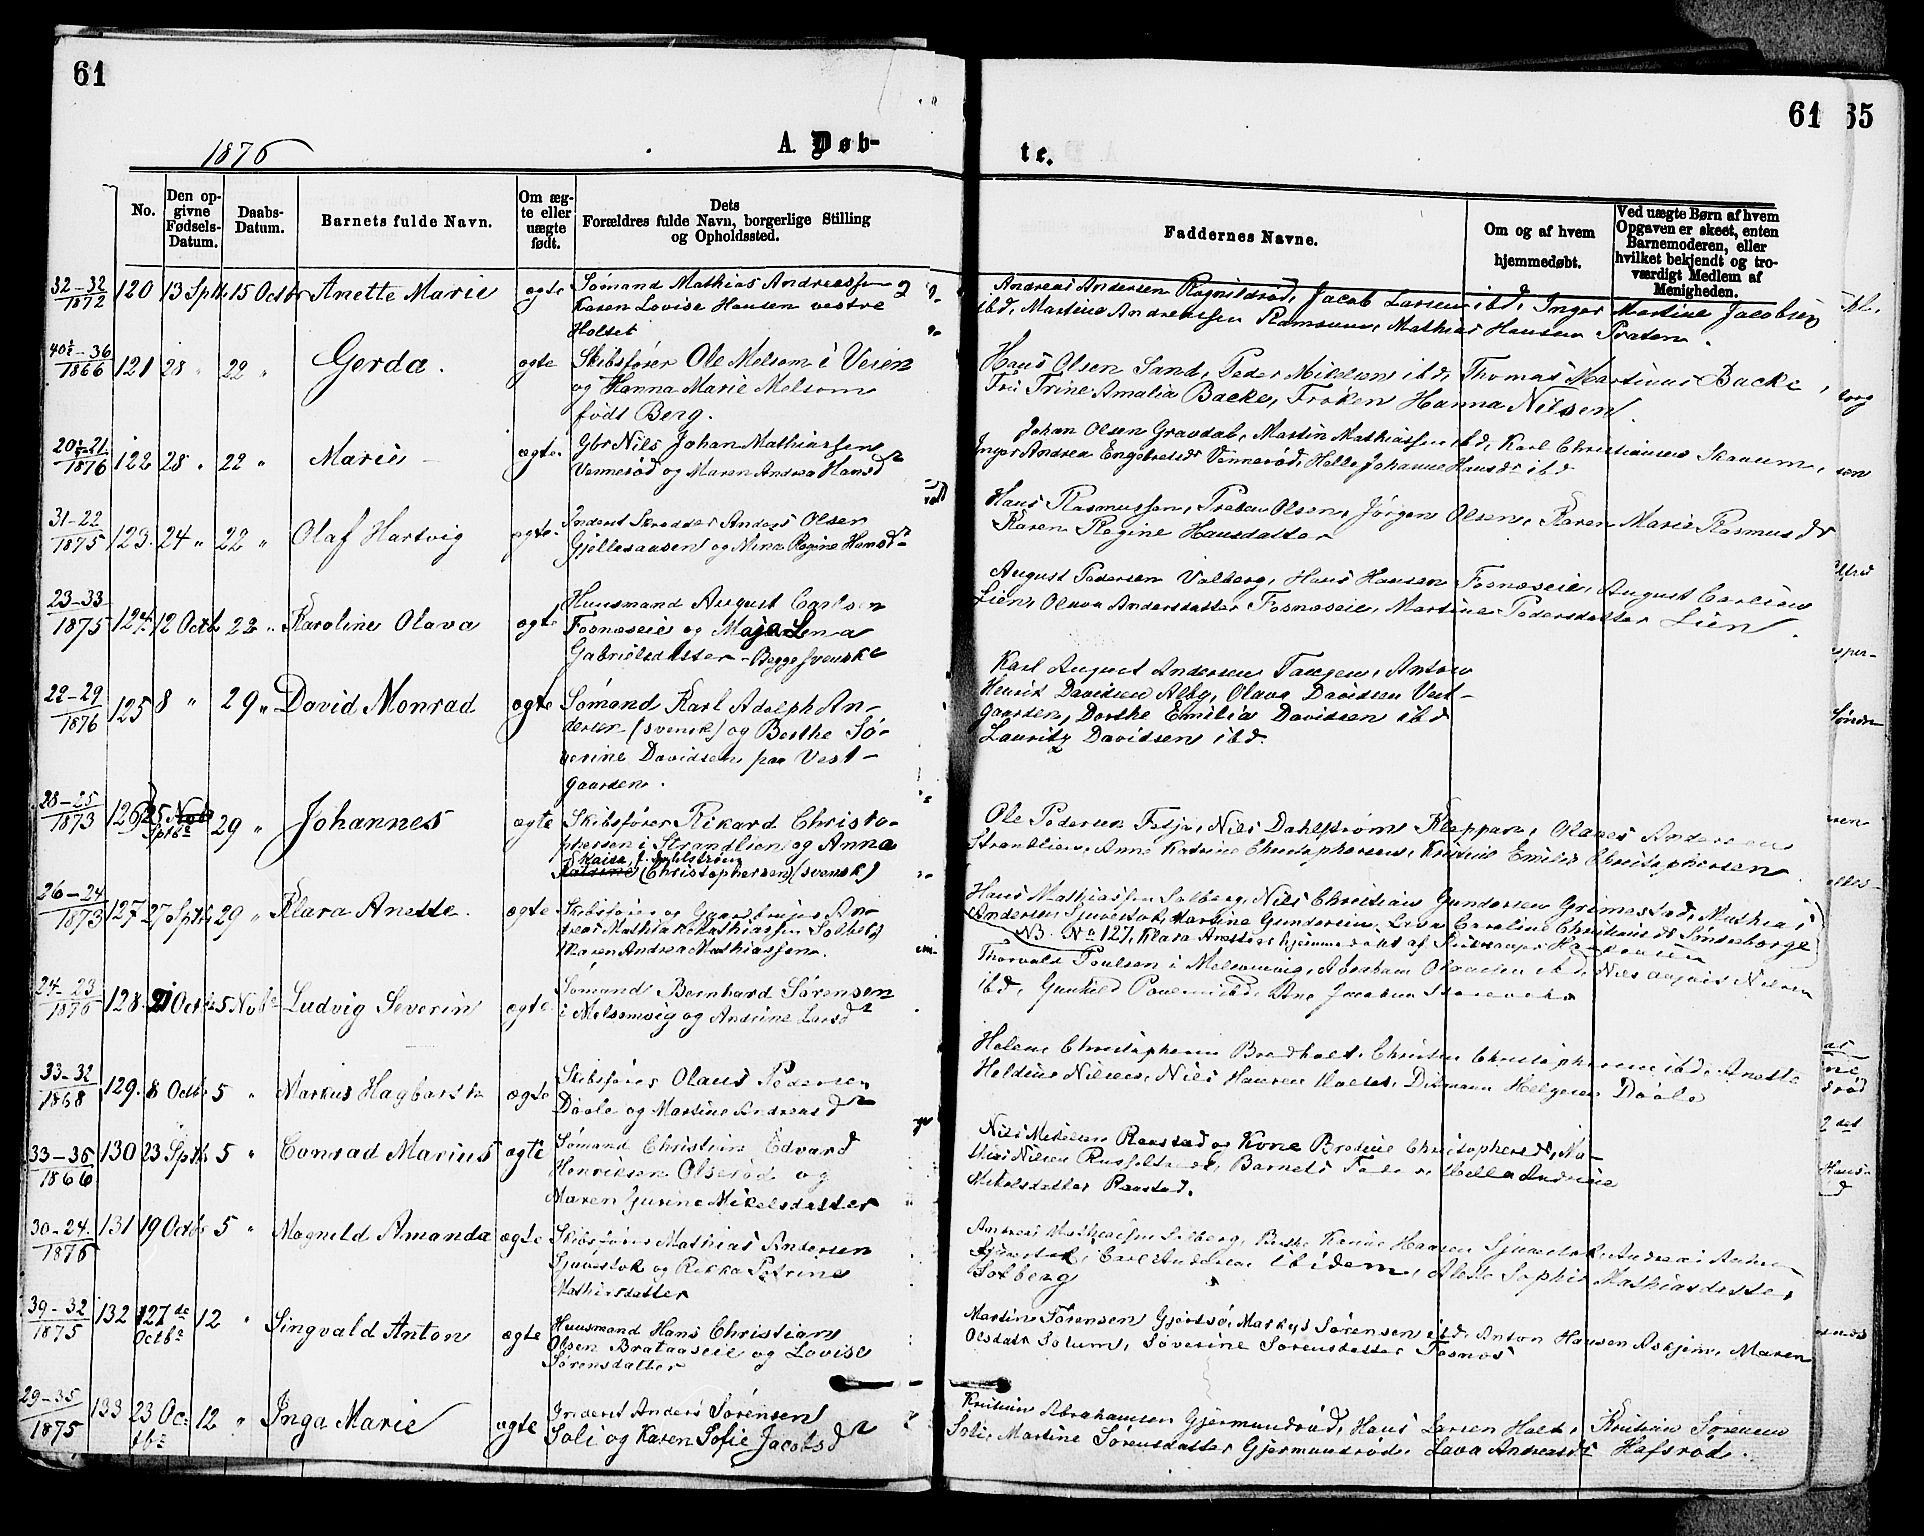 61
61
35
1876
A. Døb-
te.
No.
Den op-
givne
Fødsels-
Datum.
Daabs-
Datum.
Barnets fulde Navn.
Om æg-
te eller
uægte
født.
Dets
Forældres fulde Navn, borgerlige Stilling
og Opholdssted.
Faddernes Navne.
Om og af hvem
hjemmedøbt.
Ved uægte Børn af hvem
Opgaven er skeet, enten
Barnemoderen, eller
hvilket bekjendt og tro-
værdigt Medlem af
Menigheden.
32-32
1872
120 13 Sptb 15 Octbr Anette Marie ægte
Sømand Mathias Andreassen
Karen Lovise Hansen vestre
Holset
Andreas Andersen Ragnildrød, Jacob Larsen ibd, Inger Martine Jacobsen
ibd, Martine Andreassen Ramsum, Mathias Hansen Præten.
40½-36
1866
121 28 " 22 " Gerda. ægte
Skibsfører Ole Melsom i Veien
og Hanna Marie Melsom
født Berg.
Hans Olsen Sand, Peder Mikelsen ibd, Thomas Martinius Backe,
Fru Trine Amalia Backe, Frøken Hanna Nilsen
20½-21
1876
122 28 " 22 " Marie ægte
Gbr Nils Johan Mathiassen
Vennerød og Maren Andrea Hansd
Johan Olsen Gravdal, Martin Mathiassen ibd, Karl Christiansen Skaaum,
Inger Andrea Engebretsdr Vennerød, Helle Johanne Hansdr ibd
31-22
1875
123 24 " 22 " Olaf Hartvig ægte
Inderst Skrædder Anders Olsen
Gjellesaasen og Mina Regine Hansd
Hans Rasmussen, Preben Olsen, Jørgen Olsen, Karen Marie Rasmusdr
Karen Regine Hansdatter
23-33
1875
124 12 Octb 22 " Karoline Olava ægte
Huusmand August Carlsen
Fosnæseie og Maja Lena
Gabrielsdatter - Begge svenske
August Pedersen Valberg, Hans Hansen Fosnæseie, August Carlsen
Lien, Olava Andersdatter Fosnæseie, Martine Pedersdatter Lien.
22-29
1876
125 8 " 29 " David Monrad ægte
Sømand Karl Adolph An-
dersen (svensk) og Berthe Sø-
verine Davidsen paa Vest-
gaarden.
Karl August Andersen Tangen, Anton
Henrik Davidsen Alby, Olava Davidsen Vest-
gaarden, Dorthe Emilia Davidsen ibd
Lauritz Davidsen ibd.
28-25
1873
126 25 Sptbr 29 " Johannes ægte
Skibsfører Rikard Christo-
phersen i Strandlien og Anna
Kaisa f. Dahlstrøm
Katrine (Christophersen) (svensk)
Ole Pedersen Fetja, Nils Dahlstrøm Kleppan, Olaves Andersen
Strandlien, Anne Katrine Christophersen, Kristine Emilie Christophersen
26-24
1873
127 27 Sptb 29 " Klara Anette. ægte
Skibsfører og Gaardbruger An-
dreas Mathias Mathiassen Solberg
Karen Andrea Mathiassen.
Hans Mathiassen Solberg, Nils Christian Gundersen Grimestad, Mathias
Andersen Sjuvestok, Martine Gundersen, Lina Caroline Christiansdr Sønderborge
NB. No 127, Klara Anette er hjemmedøbt af
24-23
1876
128 21 Octbr 5 Novbr Ludvig Severin ægte
Sømand Bernhard Sørensen
i Melsomvig og Andrine Larsd
Thorvald Poulsen i Melsomvig, Abraham Olausen ibd, Nils August Nilsen
ibd, Gunhild Poulsen ibd, Ane Jacobine
33-32
1868
129 8 Octb 5 " Markus Hagbarth ægte
Skibsfører Olaus Pedersen
Døole og Martine Andreasd
Helene Christophersen Bredholt, Christen Christophersen ibd, Anette
Heldine Nilsen, Nils Hansen Holset, Ditmann Helgesen Døole
33-36
1866
130 23 Sptb 5 " Conrad Marius ægte
Sømand Christian Edvard
Henriksen Olserød og
Maren Gurine Mikelsdatter
Nils Mikelsen Raastad og Kone Brotine Christophersdr, Ma-
thias Nilsen, Barnets Fader, Helle Andrine
Mikelsdatter Raastad.
30-24
1876
131 19 Octb 5 " Magnild Amanda ægte
Skibsfører Mathias Andersen
Sjuvestok og Rikka Petrine
Mathiasdatter
Andreas Mathiassen Solberg, Berthe Karine Hansen Sjuvestok, Andreas
Sjuvestok, Carl Andersen ibidem, Alette Sophie Mathiasdatter,
Solberg
39-32
1875
132 27de
Octbr 12 " Singvald Anton ægte
Huusmand Hans Christian
Olsen Brataaseie og Lovise
Sørensdatter
Martin Sørensen Gjertsø, Markus Sørensen ibd, Anton Hansen Askjem, Maren
Olsdatr Solum, Søverine Sørensdatter Fosnæs
29-35
1875
133 23 Oc-
tbr 12 " Inga Marie ægte
Inderst Anders Sørensen
Soli og Karen Sofie Jacobsd
Kristian Abrahamsen Gjermundrød, Hans Larsen Holt, Kristian Sørensen
Soli, Martine Sørensdatter Gjermundrød, Lava Andreasdr Hafsrød.